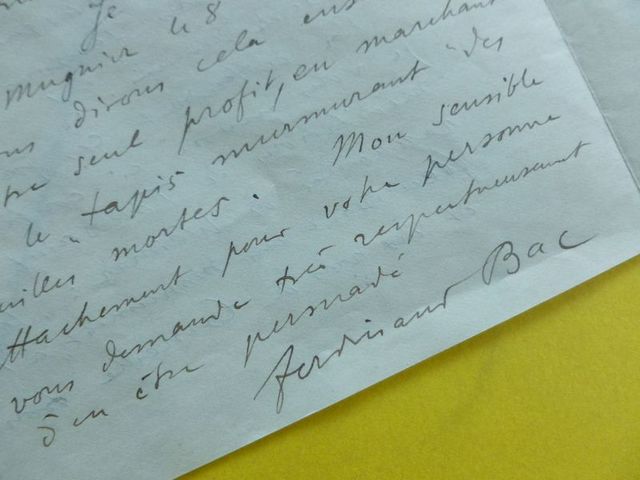 Je
Mugnier le 8
ns dirons cela en
tre seul profit, en marchant
le tapis murmurant "des
uilles mortes". Mon sensible
ttachement pour votre personne
vous demande très respectueusement
d'en être persuadé
Ferdinand Bac